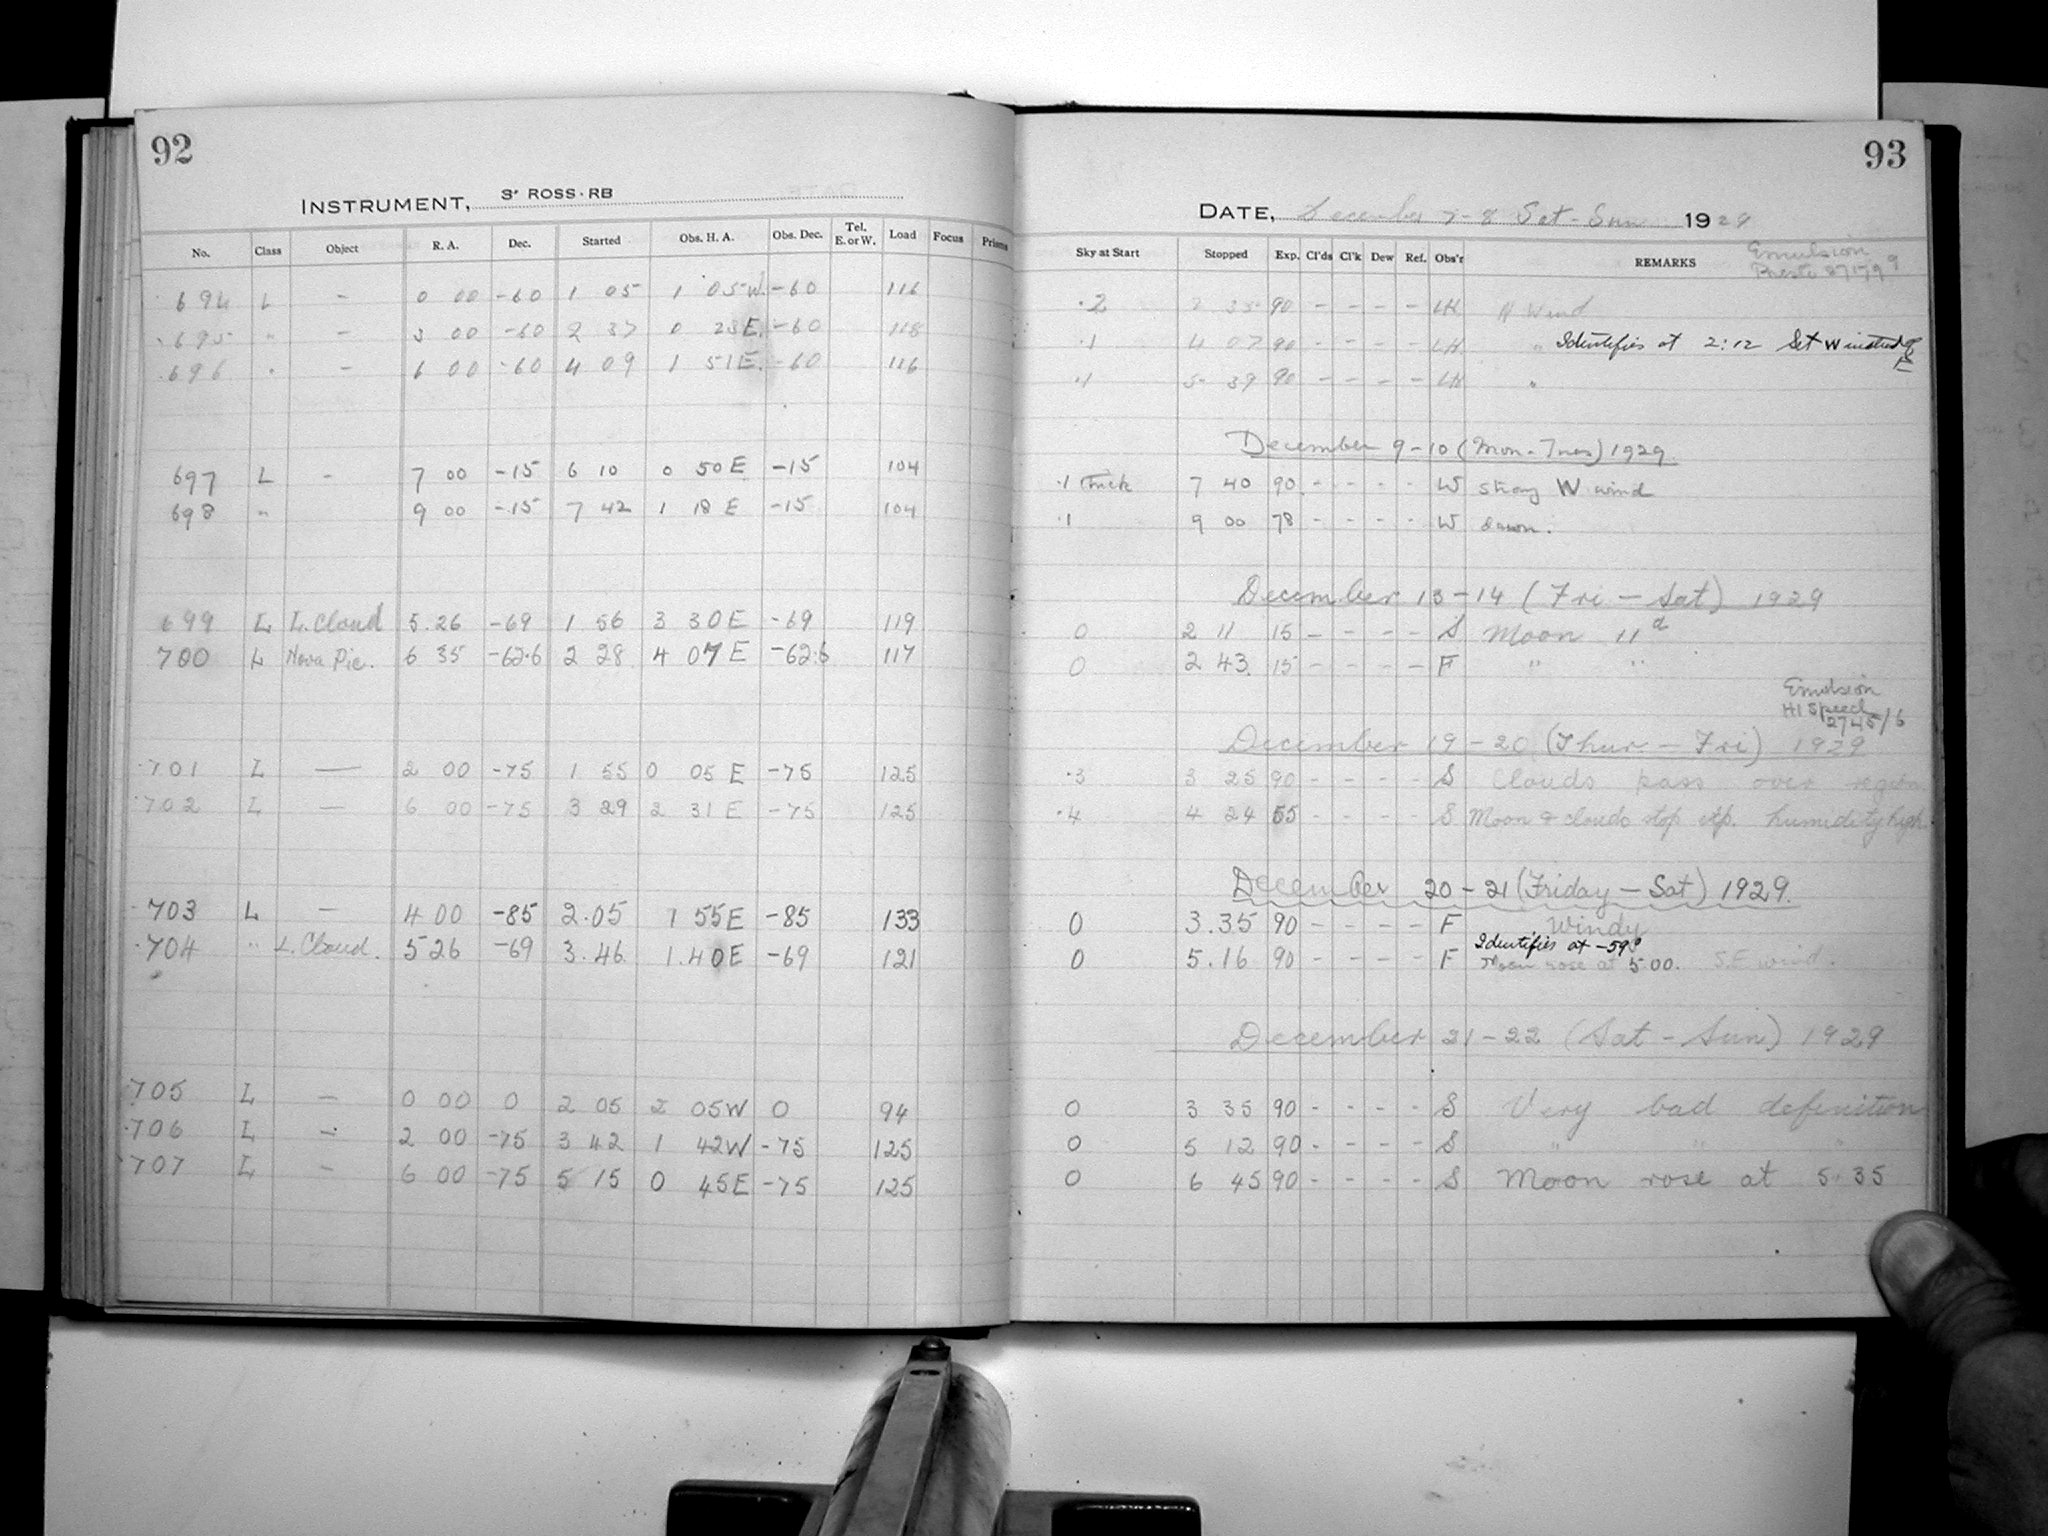 92
INSTRUMENT, 3" ROSS·RB
No. Class Object R. A. Dec. Started Obs. H. A. Obs. Dec. Tel. E. or W. Load Focus Prisms
694 L – 0 00 -60 1 05 1 05W. -60 116
695 " – 3 00 -60 2 37 0 23E. -60 118
696 " – 6 00 -60 4 09 1 51E. -60 116
697 L – 7 00 -15 6 10 0 50E -15 104
698 " 9 00 -15 7 42 1 18 E -15 104
699 L L. Cloud 5.26 -69 1 56 3 30E -69 119
700 L Nova Pic. 6 35 -62.6 2 28 4 07E -62.6 117
701 L — 2 00 -75 1 55 0 05 E -75 125
702 L — 6 00 -75 3 29 2 31 E -75 125
703 L — 4 00 -85 2.05 1 55E -85 133
704 " L. Cloud. 5 26 -69 3.46 1.40E -69 121
705 L — 0 00 0 2 05 2 05W 0 94
706 L — 2 00 -75 3 42 1 42W -75 125
707 L – 6 00 -75 5 15 0 45E -75 125
93
DATE, December 7-8 Sat-Sun 1929
Sky at Start Stopped Exp. Cl'ds Cl'k Dew Ref. Obs'r REMARKS Emulsion
.2 2 35 90 – – – – LH N Wind
.1 4 07 90 – – – – LH " Identifies at 2:12 Set W instead of E
.1 5 39 90 – – – – LH "
December 9-10 (Mon-Tues) 1929.
.1 Thick 7 40 90 – – – – W Strong W wind
.1 9 00 78 – – – – W dawn.
December 13-14 (Fri – Sat) 1929
0 2 11 15 – – – – S Moon 11d
0 2 43. 15 – – – – F " "
Emulsion
HI Speed
2745/6
December 19-20 (Thur – Fri) 1929
.3 3 25 90 – – – – S Clouds pass over region
.4 4 24 55 – – – – S Moon & clouds stop exp. humidity high.
December 20-21 (Friday – Sat) 1929.
0 3.35 90 – – – – F Windy
Identifies at -59°
0 5.16 90 – – – – F Moon rose at 5 00. S.E wind.
December 21-22 (Sat – Sun) 1929
0 3 35 90 – – – – S Very bad definition
0 5 12 90 – – – – S " " "
0 6 45 90 – – – – S Moon rose at 5.35